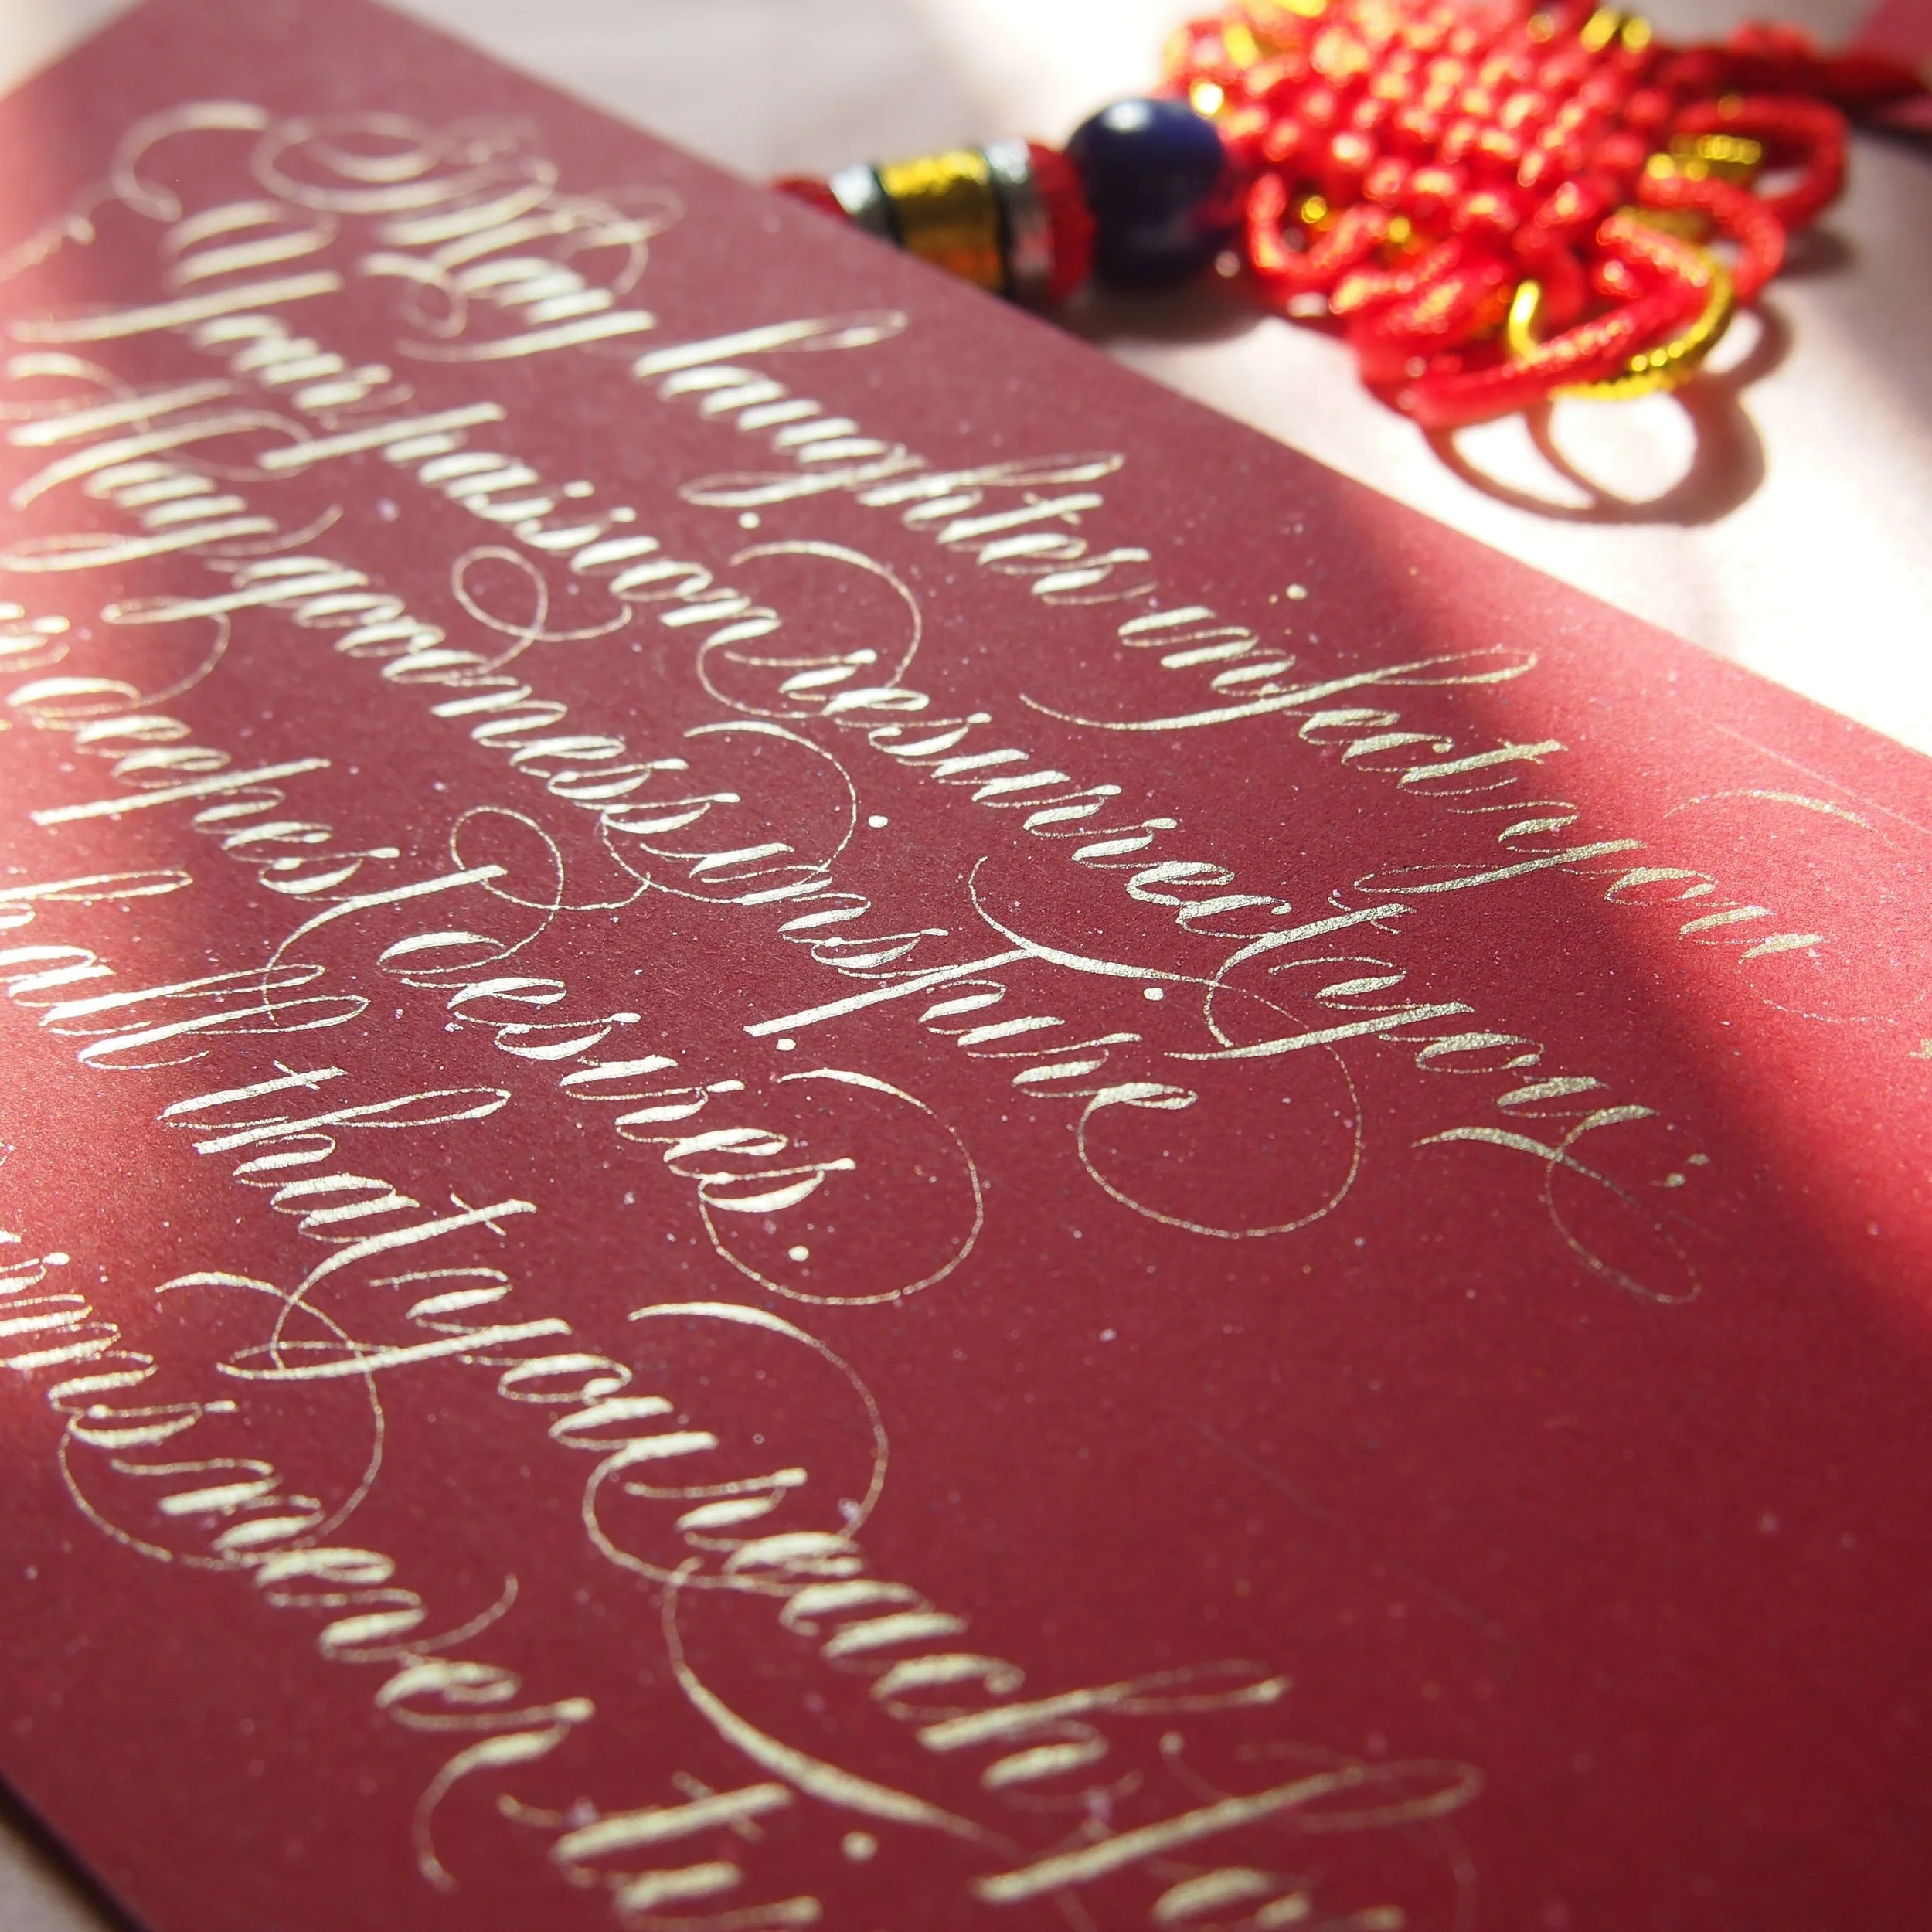 May laughter infect your
Your passion resurrect you,
May goodness inspire
deepest desires.
all that you reach
never